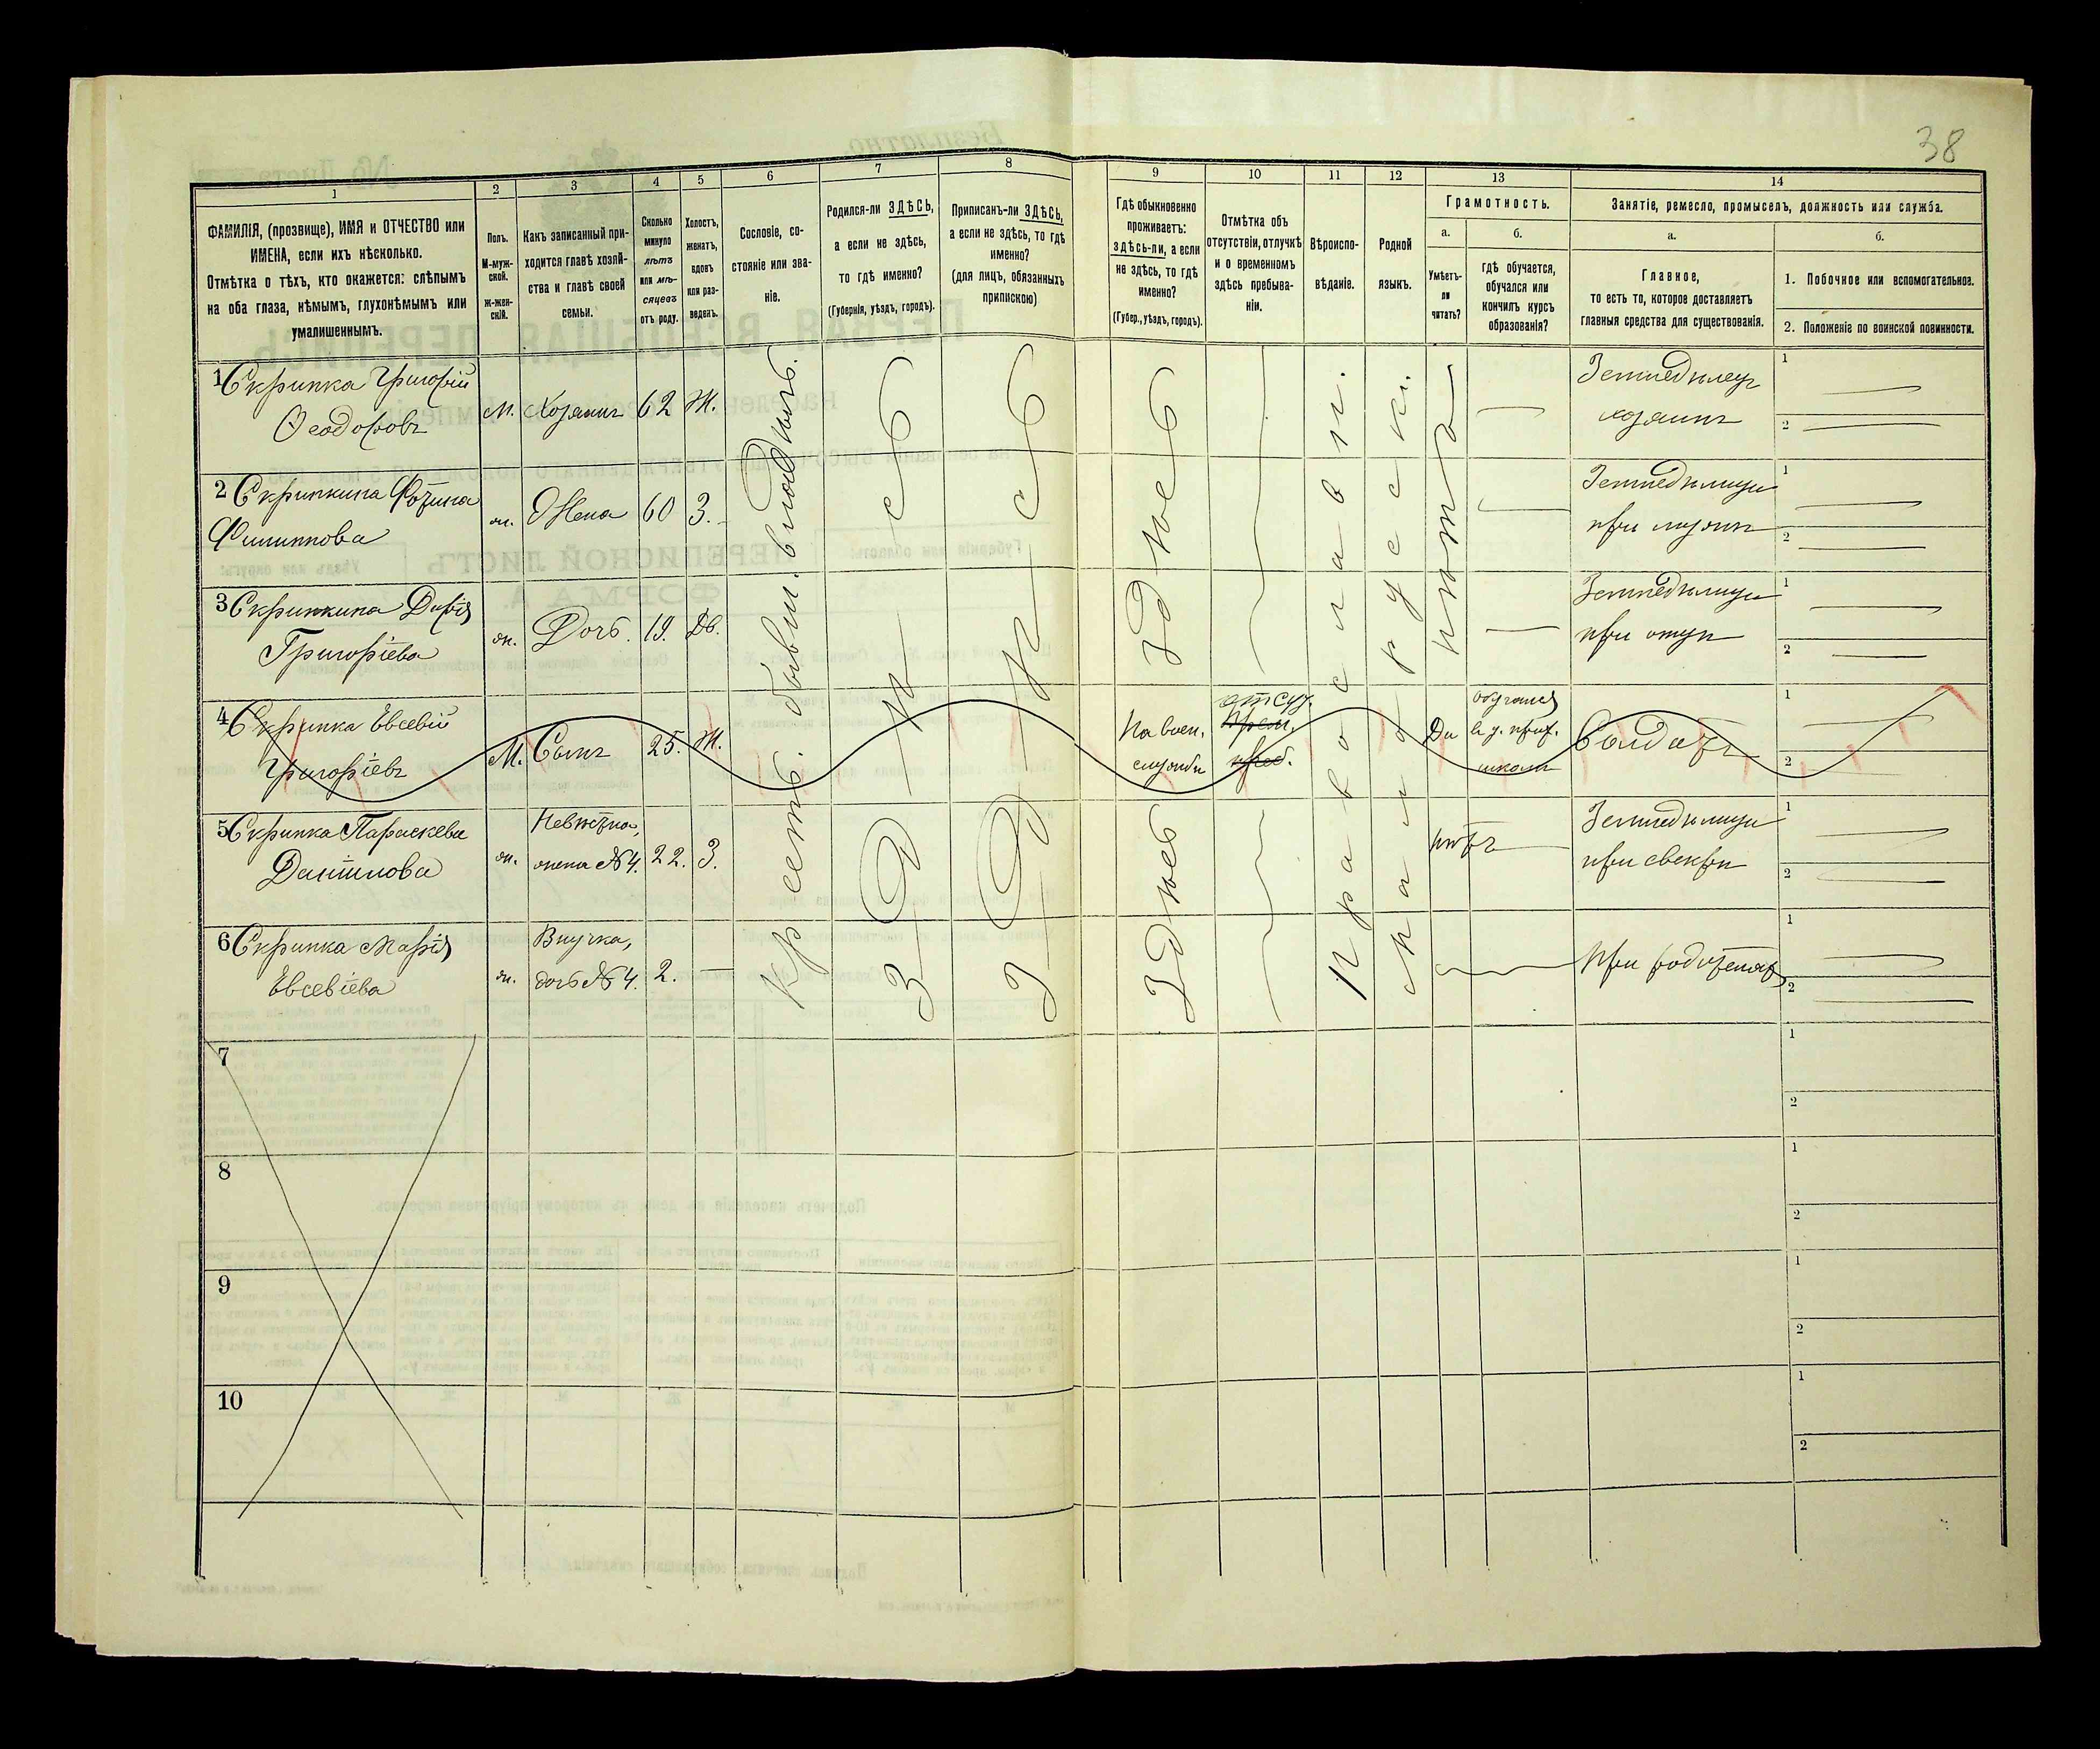 38
1
2
3
4
5
6
7
8
9
10
11
12
13
14
ФАМИЛІЯ, (прозвище), ИМЯ и ОТЧЕСТВО или
ИМЕНА, если ихъ нѣсколько.
Отмѣтка о тѣхъ, кто окажется: слѣпымъ
на оба глаза, нѣмымъ, глухонѣмымъ или
умалишеннымъ.
Полъ.
М-муж-
ской.
Ж-жен-
скій.
Какъ записанный при-
ходится главѣ хозяй-
ства и главѣ своей
семьи.
Сколько
минуло
лѣтъ
или мѣ-
сяцевъ
отъ роду.
Холостъ,
женатъ,
вдовъ
или раз-
веденъ.
Сословіе, со-
стояніе или зва-
ніе.
Родился-ли ЗДѢСЬ,
а если не здѣсь,
то гдѣ именно?
(Губернія, уѣздъ, городъ).
Приписанъ-ли ЗДѢСЬ,
а если не здѣсь, то гдѣ
именно?
(для лицъ, обязанныхъ
припискою)
Гдѣ обыкновенно
проживаетъ:
здѣсь-ли, а если
не здѣсь, то гдѣ
именно?
(Губер., уѣздъ, городъ).
Отмѣтка объ
отсутствіи, отлучкѣ
и о временномъ
здѣсь пребыва-
ніи.
Вѣроиспо-
вѣданіе.
Родной
языкъ.
Грамотность.
а.
Умѣетъ-
ли
читать?
б.
гдѣ обучается,
обучался или
кончилъ курсъ
образованія?
Занятіе, ремесло, промыселъ, должность или служба.
а.
Главное,
то есть то, которое доставляетъ
главныя средства для существованія.
б.
1. Побочное или вспомогательное.
2. Положеніе по воинской повинности.
1 Скрипка Григорій
Ѳеодоровъ
М.
Хозяинъ
62
Ж.
Крест. бывш. владѣльч.
Здѣсь
Здѣсь
Здѣсь
Православн.
Малорусск.
нѣтъ
Земледѣлецъ
хозяинъ
1
2
2 Скрипкина
Филиппова
ж.
Жена
60
З.
Земледѣлица
при мужѣ
1
2
3 Скрипкина Дарія
Григоріева
ж.
Дочь.
19.
Дѣ.
Земледѣлица
при отцѣ
1
2
4 Скрипка Евсевій
Григоріевъ
М.
Сынъ
25.
Ж.
На воен.
службѣ
отсут.
Врем.
преб.
Да
обучался
въ ц.прих.
школѣ
Солдатъ
1
2
5 Скрипка Параскева
Даніилова
ж.
Невѣстка,
жена №4.
22.
З.
Здѣсь
нѣтъ
Земледѣлица
при свекрѣ
1
2
6 Скрипка Марія
Евсевіева
ж.
Внучка,
дочь №4.
2.
При родителяхъ
1
2
7
1
2
8
1
2
9
1
2
10
1
2